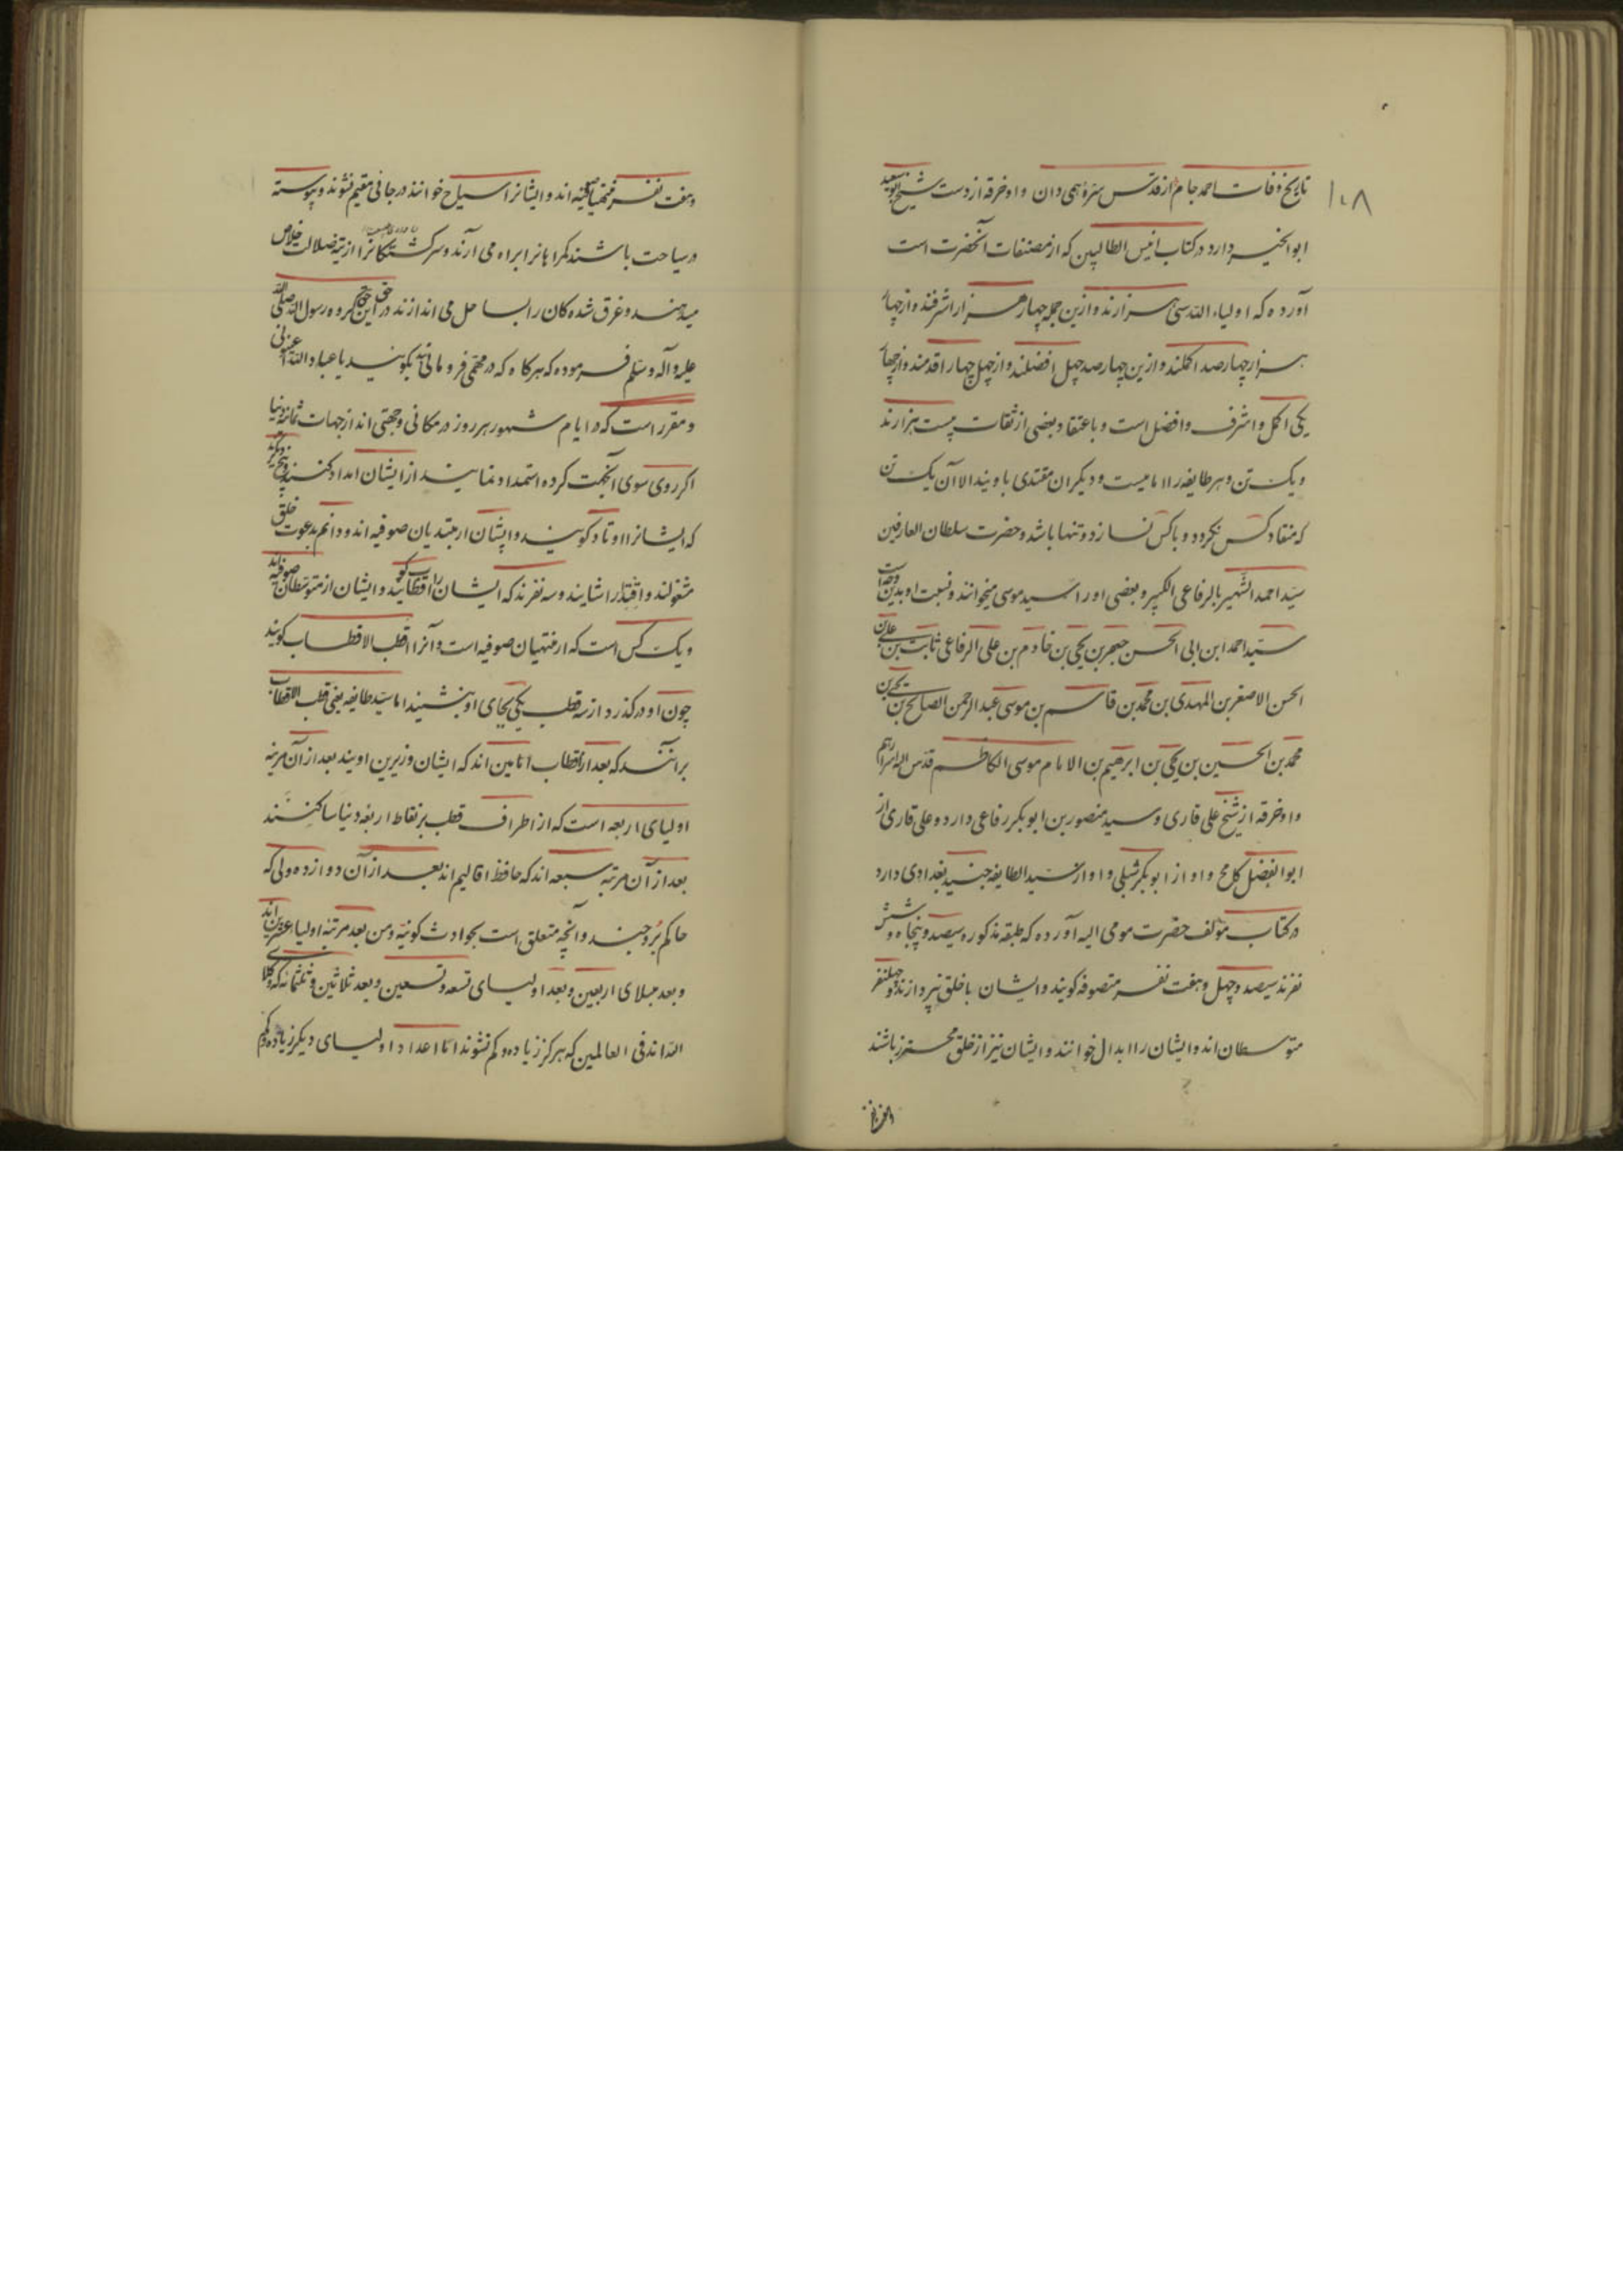 ۱۰۸
تاریخ وفات احمد جام از قدس سره همی دان و او خرقه از دست شیخ ابوسعید
ابوالخیر دارد در کتاب انیس الطالبین که از مصنفات آنحضرت است
آورده که اولیاء الله سی هزارند و ازین جمله چهار هزار اشرفند و از چهار
هزار چهارصد اکملند و ازین چهارصد چهل افضلند و از چهل چهار اقدمند و از چهار
یکی اکمل و اشرف و افضل است و باعتقاد بعضی از ثقات بیست هزارند
و یک تن و هر طایفه را امامیست و دیگران مقتدی باویند الا آن یک تن
که منقاد کس نگردد و با کس نسازد و تنها باشد و حضرت سلطان العارفین
سید احمد الشهیر بالرفاعی الکبیر و بعضی او را سید موسی میخوانند و نسبت او بدین وجه است
سید احمد ابن ابی الحسن جعفر بن یحیی بن خادم بن علی الرفاعی ثابت بن علی بن
الحسن الاصغر بن المهدی بن محمد بن قاسم بن موسی عبد الرحمن الصالح بن یحیی بن
محمد بن الحسین بن یحیی بن ابرهیم بن الامام موسی الکاظم قدس الله اسرارهم
و او خرقه از شیخ علی قاری و سید منصور بن ابوبکر رفاعی دارد و علی قاری از
ابوالفضل کامخ و او از ابوبکر شبلی و او از سید الطایفه جنید بغدادی دارد
در کتاب مؤلف حضرت مومی الیه آورده که طبقه مذکوره سیصد و پنجاه و شش
نفرند سیصد و چهل و هفت نفر متصوفه گویند و ایشان با خلق نپردازند و چهلنفر
متوسطان اند و ایشان را ابدال خوانند و ایشان نیز از خلق محترز باشند
و هفت نفر منتهیان صوفیه اند و ایشانرا سیاح خوانند در جائی مقیم نشوند و پیوسته
در سیاحت باشند گمراهانرا براه می آرند و سرکشتگانرا از تیه ضلالت خلاص
میدهند و غرق شده کان را بساحل می اندازند در حق این گروه رسول الله صلی الله
علیه و آله و سلم فرموده که هرکاه که در مهمی فرو مانید بگویید یا عباد الله اعینونی
و مقرر است که در ایام شهور هر روز در مکانی و جهتی اند از جهات ثمانیه دنیا
اگر روی سوی آنجهت کرده استمداد نمایند از ایشان امداد کنند و پنج دیگرند
که ایشانرا اوتاد گویند و ایشان از مبتدیان صوفیه اند و دائم بدعوت خلق
مشغولند و اقتدا را شایند و سه نفرند که ایشان را اقطاب گویند و ایشان از متوسطان صوفیه اند
و یک کس است که از منتهیان صوفیه است و آنرا قطب الاقطاب گویند
چون او درگذرد از سه قطب یکی بجای او بنشیند اما سید طایفه یعنی قطب الاقطاب
برآنند که بعد از اقطاب امامین اند که ایشان وزیرین اویند بعد از آن مرتبه
اولیای اربعه است که از اطراف قطب بر نقاط اربعه دنیا ساکنند
بعد از آن مرتبه سبعه اند که حافظ اقالیم اند بعد از آن دوازده ولی که
حاکم بروجند و آنچه متعلق است بحوادث کونیه و من بعد مرتبه اولیاء عشرین اند
و بعد بدلای اربعین و بعد اولیای تسعه و تسعین و بعد ثلاثین و ثلثمائه که وکلا
الله اند فی العالمین که هرگز زیاده و کم نشوند اما اعداد اولیای دیگر زیاده و کم